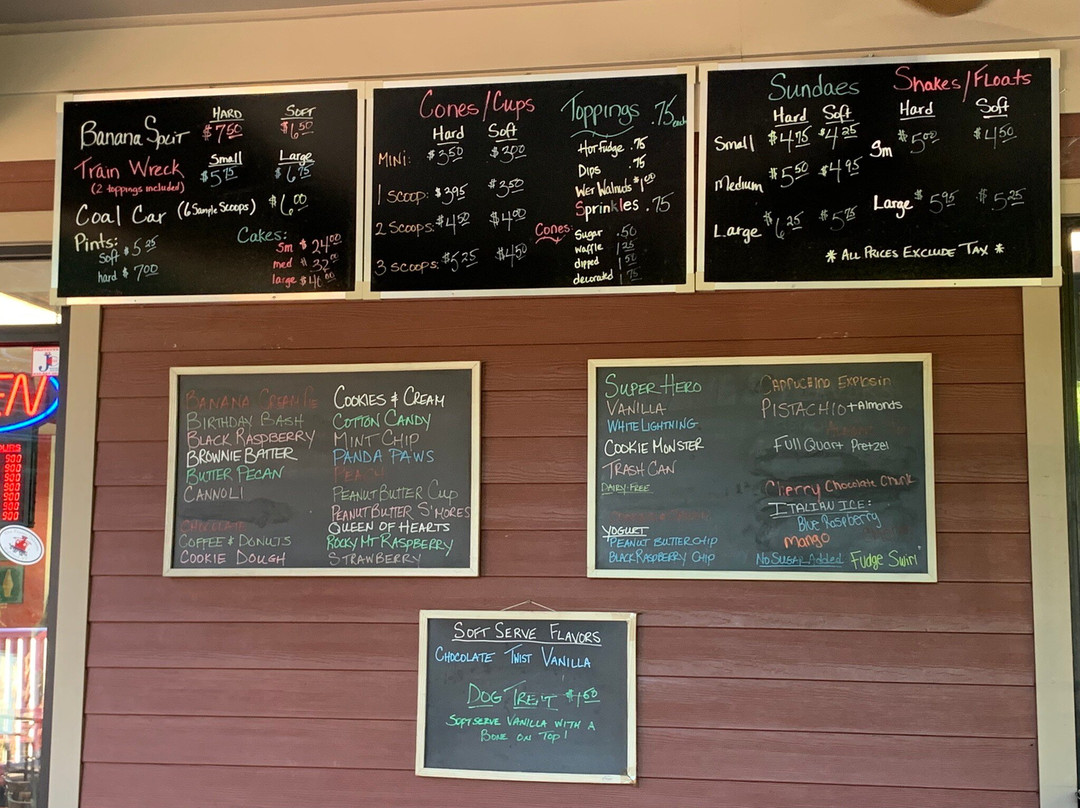 HARD SOFT
Banana Split $7.50 $6.50
Small Large
Train Wreck $5.75 $6.75
(2 toppings included)
Coal Car (6 Sample Scoops) $6.00
Pints:
soft $5.25
hard $7.00
Cakes:
sm $24.00
med $32.00
large
Cones/Cups
Hard Soft
MINI: $3.50 $3.00
1 SCOOP: $3.95 $3.50
2 SCOOPS: $4.50 $4.00
3 SCOOPS: $5.25 $4.50
Toppings .75 each
Hot Fudge .75
Dips .75
Wet Walnuts $1.00
Sprinkles .75
Cones:
Sugar .50
waffle 1.25
dipped 1.50
decorated 1.75
Sundaes
Hard Soft
Small $4.75 $4.25
Medium $5.50 $4.95
Large $6.25 $5.75
Shakes/Floats
Hard Soft
Sm $5.00 $4.50
Large $5.95 $5.25
* ALL PRICES EXCLUDE TAX *
BANANA CREAM PIE
BIRTHDAY BASH
BLACK RASPBERRY
BROWNIE BATTER
BUTTER PECAN
CANNOLI
CHOCOLATE
COFFEE & DONUTS
COOKIE DOUGH
COOKIES & CREAM
COTTON CANDY
MINT CHIP
PANDA PAWS
PEACH
PEANUT BUTTER CUP
PEANUT BUTTER S'MORES
QUEEN OF HEARTS
ROCKY MT RASPBERRY
STRAWBERRY
SUPER HERO
VANILLA
WHITE LIGHTNING
COOKIE MONSTER
TRASH CAN
DAIRY-FREE
YOGURT
PEANUT BUTTER CHIP
BLACK RASPBERRY CHIP
CAPPUCCINO EXPLOSIN
PISTACHIO + Almonds
Full Quart Pretzel
Cherry Chocolate Chunk
ITALIAN ICE:
Blue Raspberry
mango
No SUGAR Added Fudge Swirl
SOFT SERVE FLAVORS
CHOCOLATE TWIST VANILLA
DOG TREAT $1.50
SOFT SERVE VANILLA WITH A
BONE ON TOP!
EN